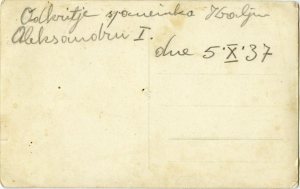 Odkritje spomenika Kralju
Aleksandru I.
dne 5·X·37